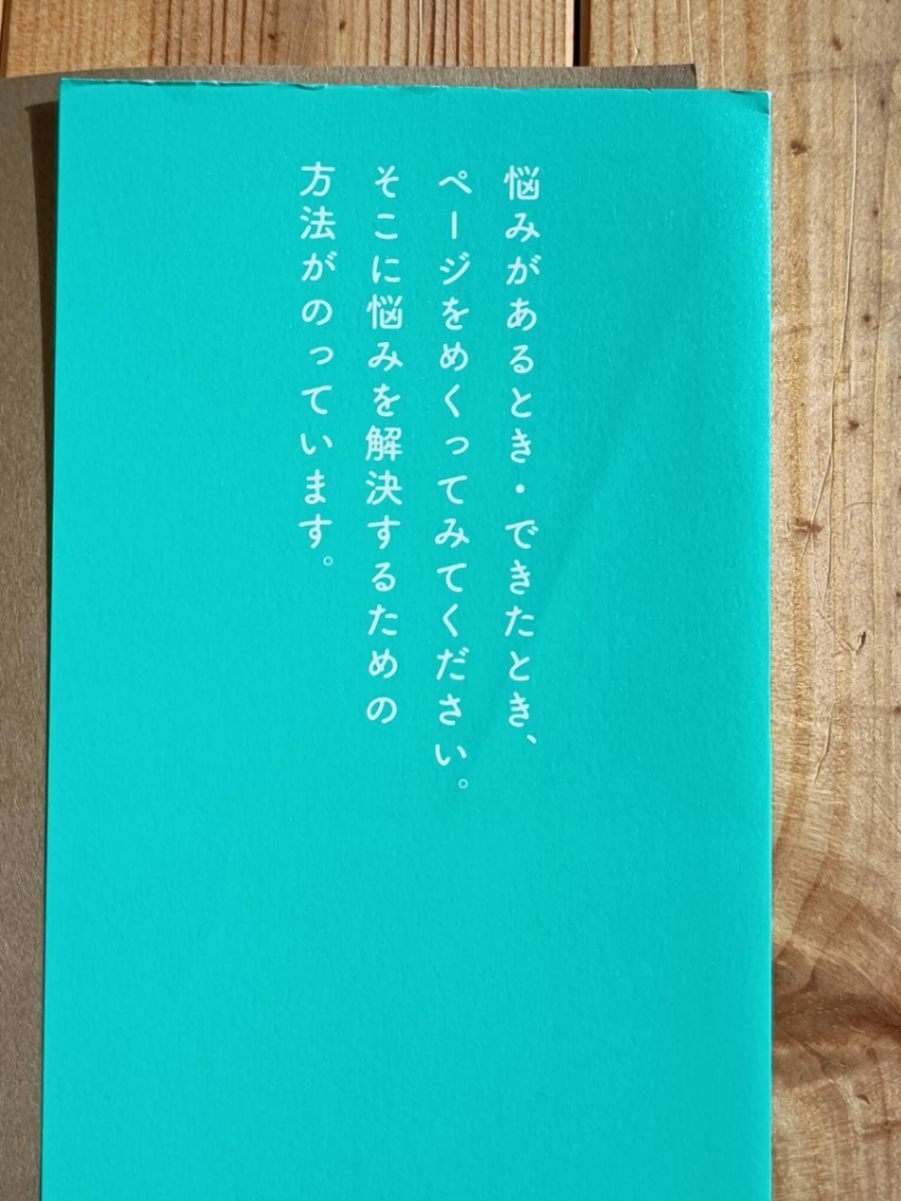 悩みがあるとき・できたとき、
ページをめくってみてください。
そこに悩みを解決するための
方法がのっています。